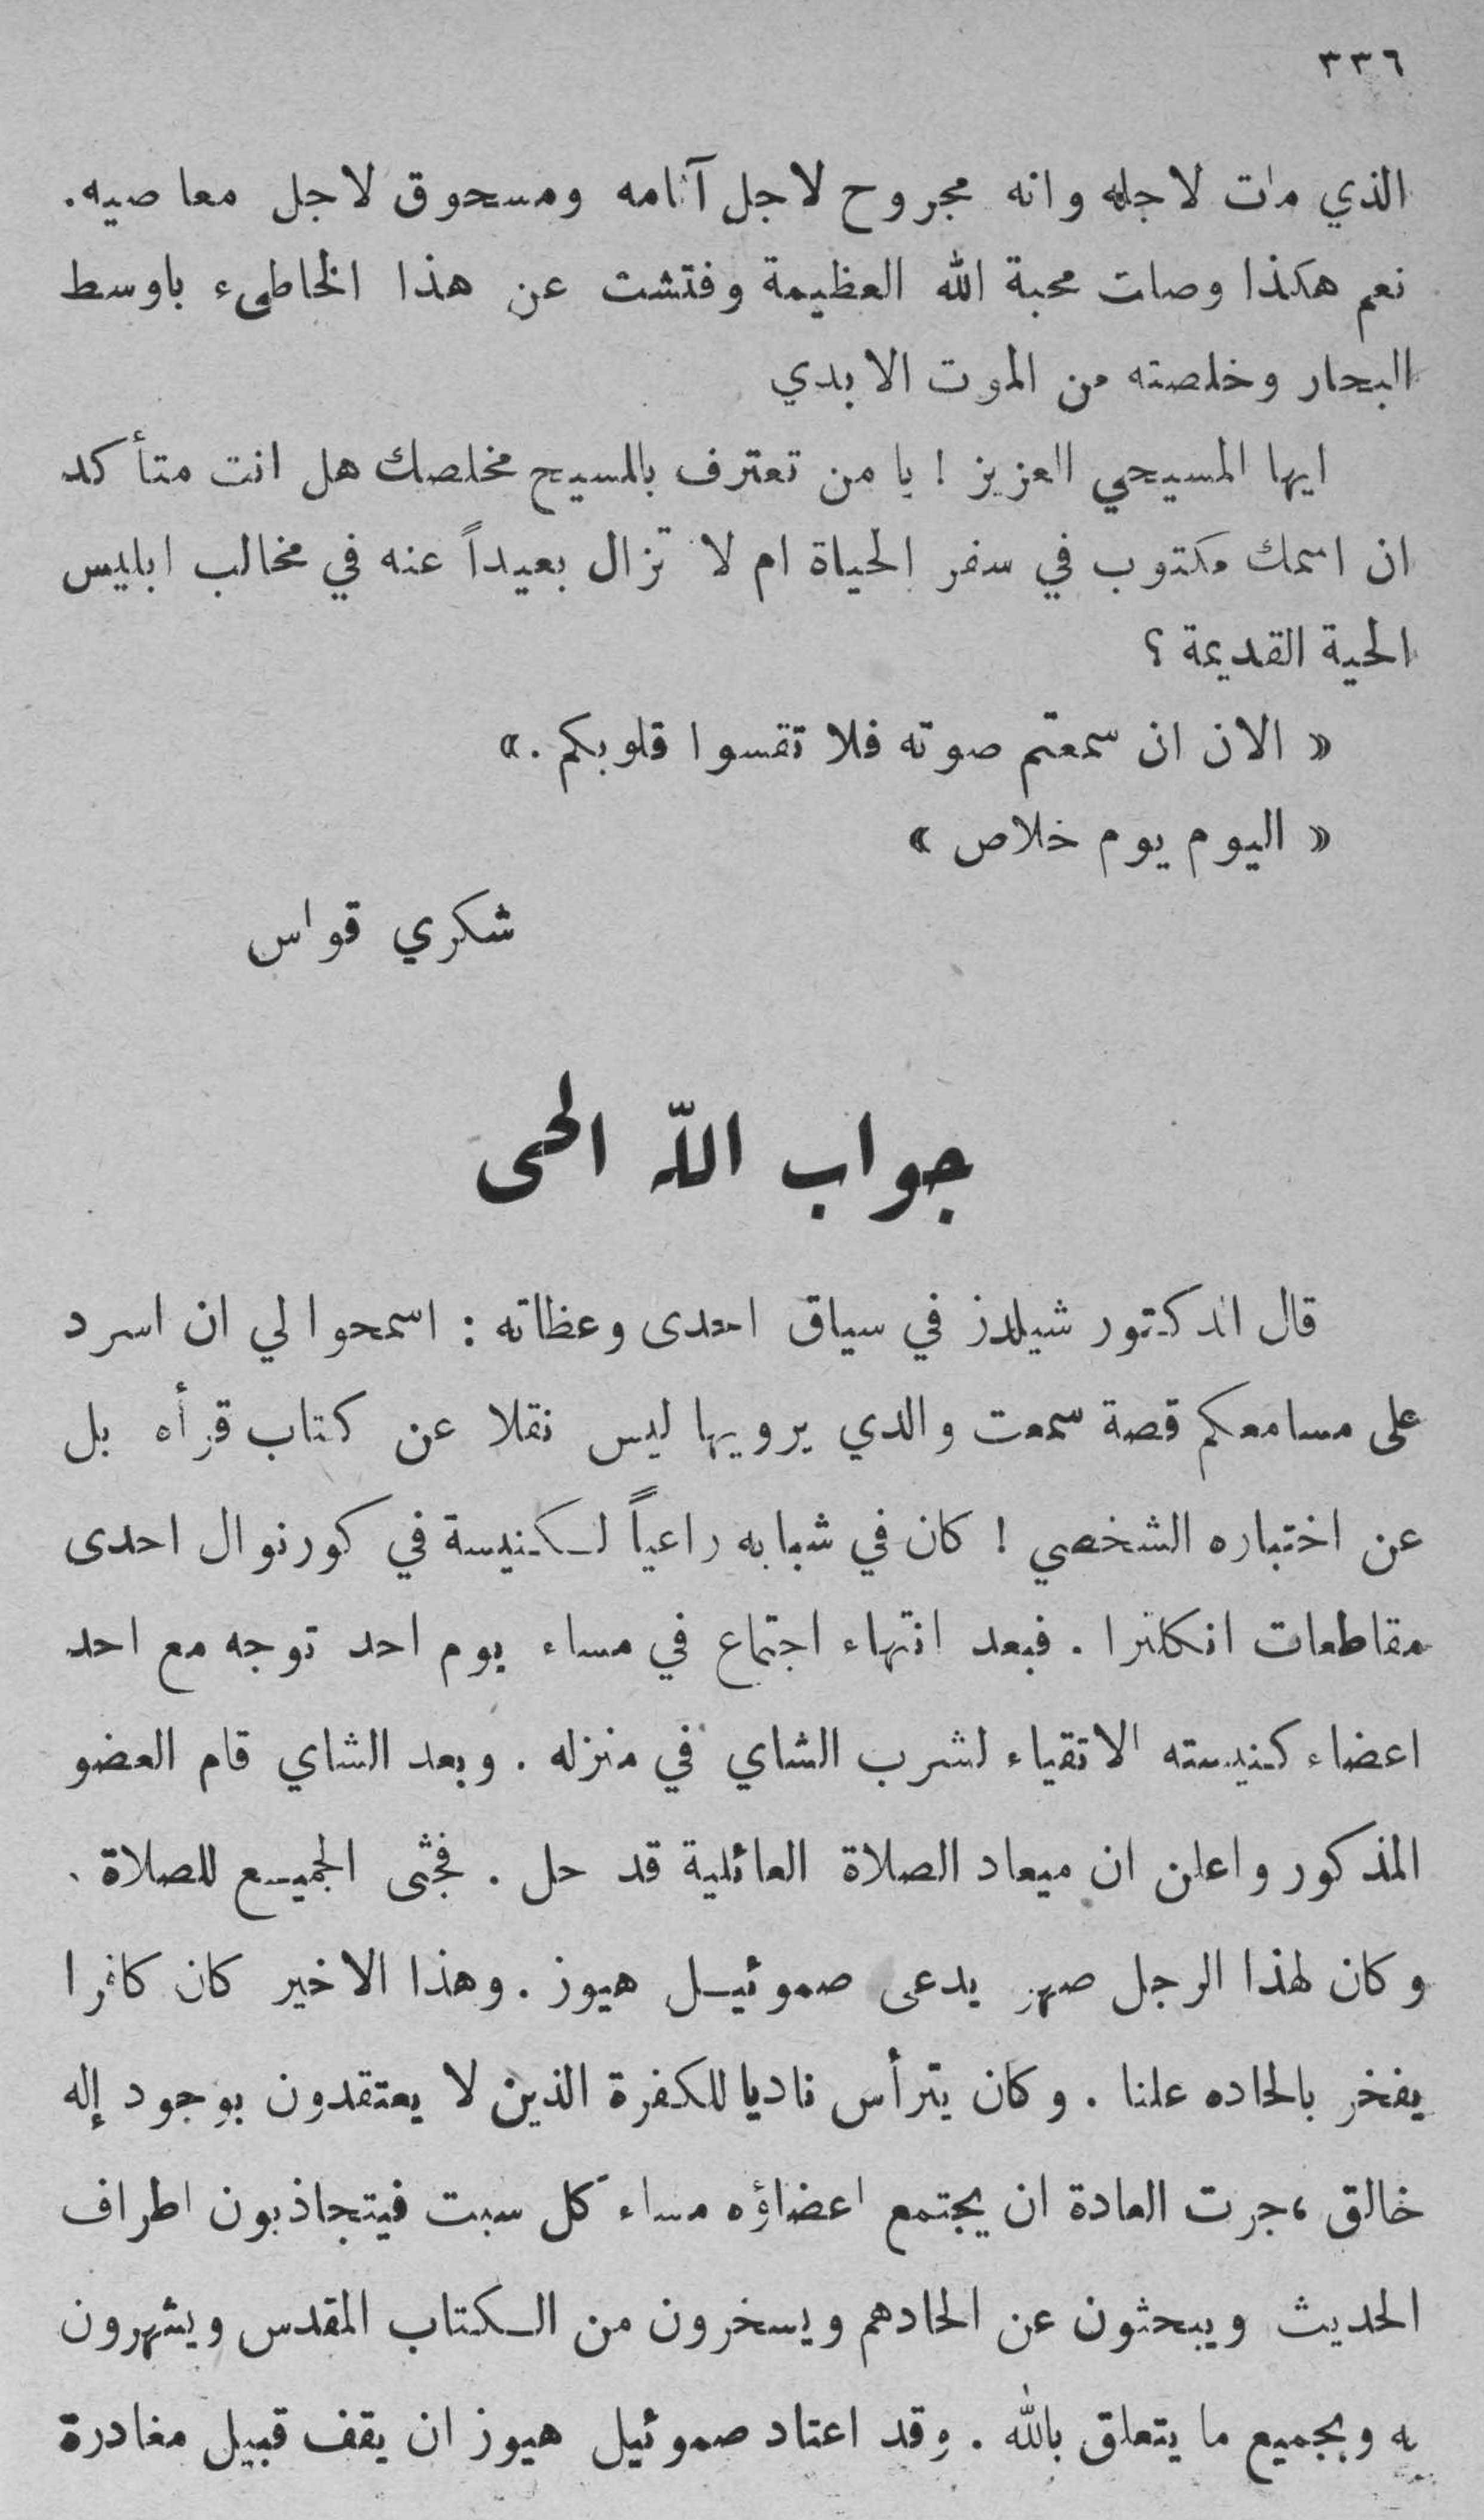 ٣٣٦
الذي مات لاجله وانه مجروح لاجل آثامه ومسحوق لاجل معاصيه.
نعم هكذا وصلت محبة الله العظيمة وفتشت عن هذا الخاطىء باوسط
البحار وخلصته من الموت الابدي
ايها المسيحي العزيز ! يا من تعترف بالمسيح مخلصك هل انت متأكد
ان اسمك مكتوب في سفر الحياة ام لا تزال بعيداً عنه في مخالب ابليس
الحية القديمة ؟
« الان ان سمعتم صوته فلا تقسوا قلوبكم . »
« اليوم يوم خلاص »
شكري قواس
جواب الله الحى
قال الدكتور شيلدز في سياق احدى وعظاته : اسمحوا لي ان اسرد
على مسامعكم قصة سمعت والدي يرويها ليس نقلا عن كتاب قرأه بل
عن اختباره الشخصي ! كان في شبابه راعياً لكنيسة في كورنوال احدى
مقاطعات انكلترا . فبعد انتهاء اجتماع في مساء يوم احد توجه مع احد
اعضاء كنيسته الاتقياء لشرب الشاي في منزله . وبعد الشاي قام العضو
المذكور واعلن ان ميعاد الصلاة العائلية قد حل . فجثى الجميع للصلاة .
وكان لهذا الرجل صهر يدعى صموئيل هيوز . وهذا الاخير كان كافرا
يفخر بالحاده علنا . وكان يترأس ناديا للكفرة الذين لا يعتقدون بوجود إله
خالق ، جرت العادة ان يجتمع اعضاؤه مساء كل سبت فيتجاذبون اطراف
الحديث ويبحثون عن الحادهم ويسخرون من الكتاب المقدس ويشهرون
به وبجميع ما يتعلق بالله . وقد اعتاد صموئيل هيوز ان يقف قبيل مغادرة